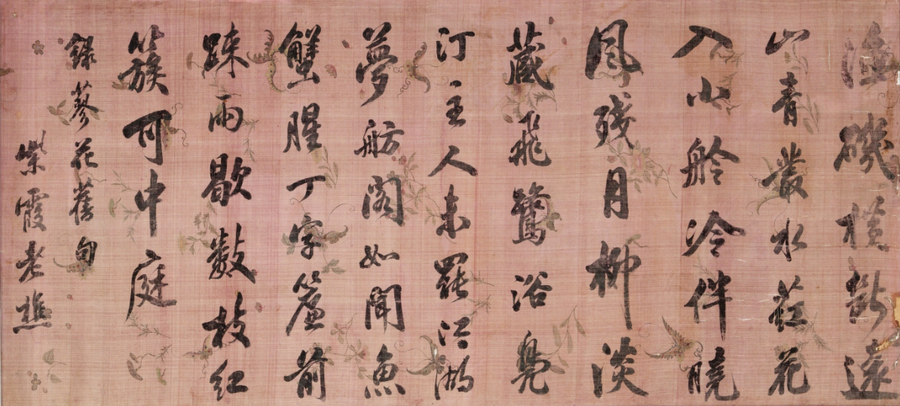 漁磯橫斷遠
山青叢水葒花
入小舲冷伴曉
風殘月柳淡
藏飛鷺浴鳧
汀主人未罷江湖
夢舫閣如聞魚
蟹腥丁字簾前
疎雨歇數枝紅
簇可中庭
錄蓼花舊句
紫霞老樵